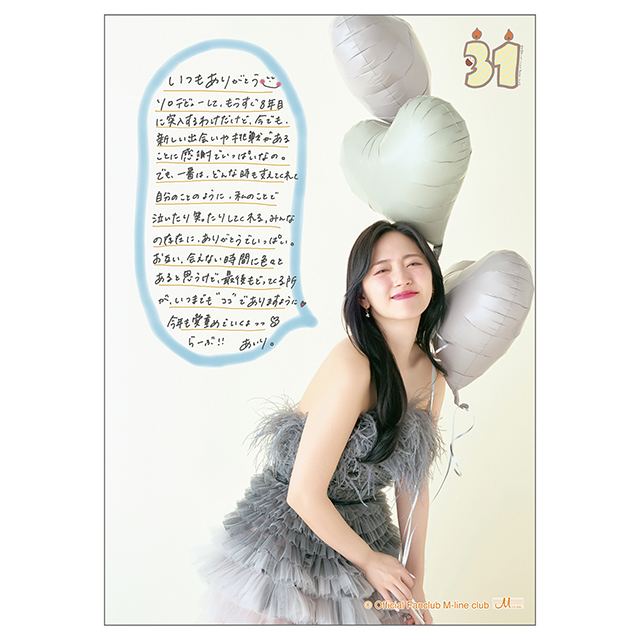 いつもありがとう
ソロデビューして、もうすぐ8年目
に突入するわけだけど、今でも、
新しい出会いや挑戦がある
ことに感謝でいっぱいなの。
でも、一番は、どんな時も支えてくれて
自分のことのように、私のことで
泣いたり笑ったりしてくれる、みんな
の存在に、ありがとうでいっぱい。
お互い、会えない時間に色々と
あると思うけど、最後もどってくる所
が、いつまでも"ココ"でありますように
今年も愛重めでいくよっっ
らーぶ!! あいり。
31
© Official Fanclub M-line club
M